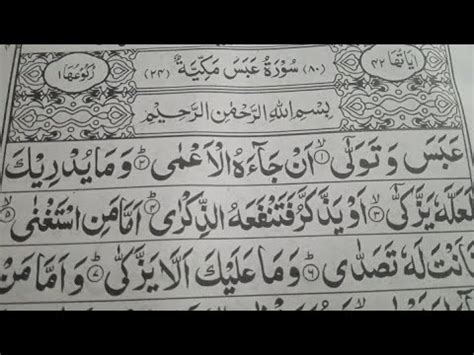 اٰيَاتُهَا ۴۲ (۸۰) سُوْرَةُ عَبَسَ مَكِّيَّةٌ (۲۴) رُكُوْعُهَا ۱
بِسْمِ اللّٰهِ الرَّحْمٰنِ الرَّحِيْمِ
عَبَسَ وَتَوَلّٰٓى ۙ۱ اَنْ جَآءَهُ الْاَعْمٰى ؕ۲ وَمَا يُدْرِيْكَ
لَعَلَّهٗ يَزَّكّٰٓى ۙ۳ اَوْ يَذَّكَّرُ فَتَنْفَعَهُ الذِّكْرٰى ؕ۴ اَمَّا مَنِ اسْتَغْنٰى ۙ۵
اَنْتَ لَهٗ تَصَدّٰى ؕ۶ وَمَا عَلَيْكَ اَلَّا يَزَّكّٰى ؕ۷ وَاَمَّا مَنْ